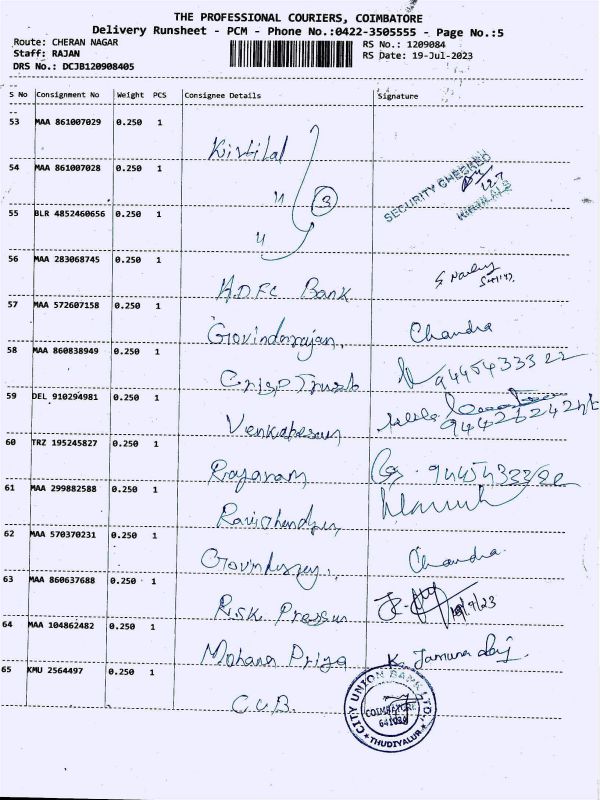 THE PROFESSIONAL COURIERS, COIMBATORE
Delivery Runsheet - PCM - Phone No.:0422-3505555 - Page No.:5
Route: CHERAN NAGAR
RS No.: 1209084
Staff: RAJAN
RS Date: 19-Jul-2023
DRS No.: DCJB120908405
S No Consignment No Weight PCS Consignee Details Signature
53 MAA 861007029 0.250 1
Kirtilal
54 MAA 861007028 0.250 1
SECURITY CHECKED
KIRTILALS
" 3
55 BLR 4852460656 0.250 1
"
56 MAA 283068745 0.250 1
H.D.F.C Bank
57 MAA 572607158 0.250 1
Govinderajan, Chandra
58 MAA 860838949 0.250 1
Crisp Trust 9445433322
59 DEL 910294981 0.250 1
Venkatesan
60 TRZ 195245827 0.250 1
Rajaram
61 MAA 299882588 0.250 1
62 MAA 570370231 0.250 1
Chandra.
63 MAA 860637688 0.250 1
Risk Pressure
64 MAA 104862482 0.250 1
Mohana Priya K. Jamuna
65 KMU 2564497 0.250 1
C.U.B.
CITY UNION BANK LTD.
COIMBATORE
THUDIYALUR